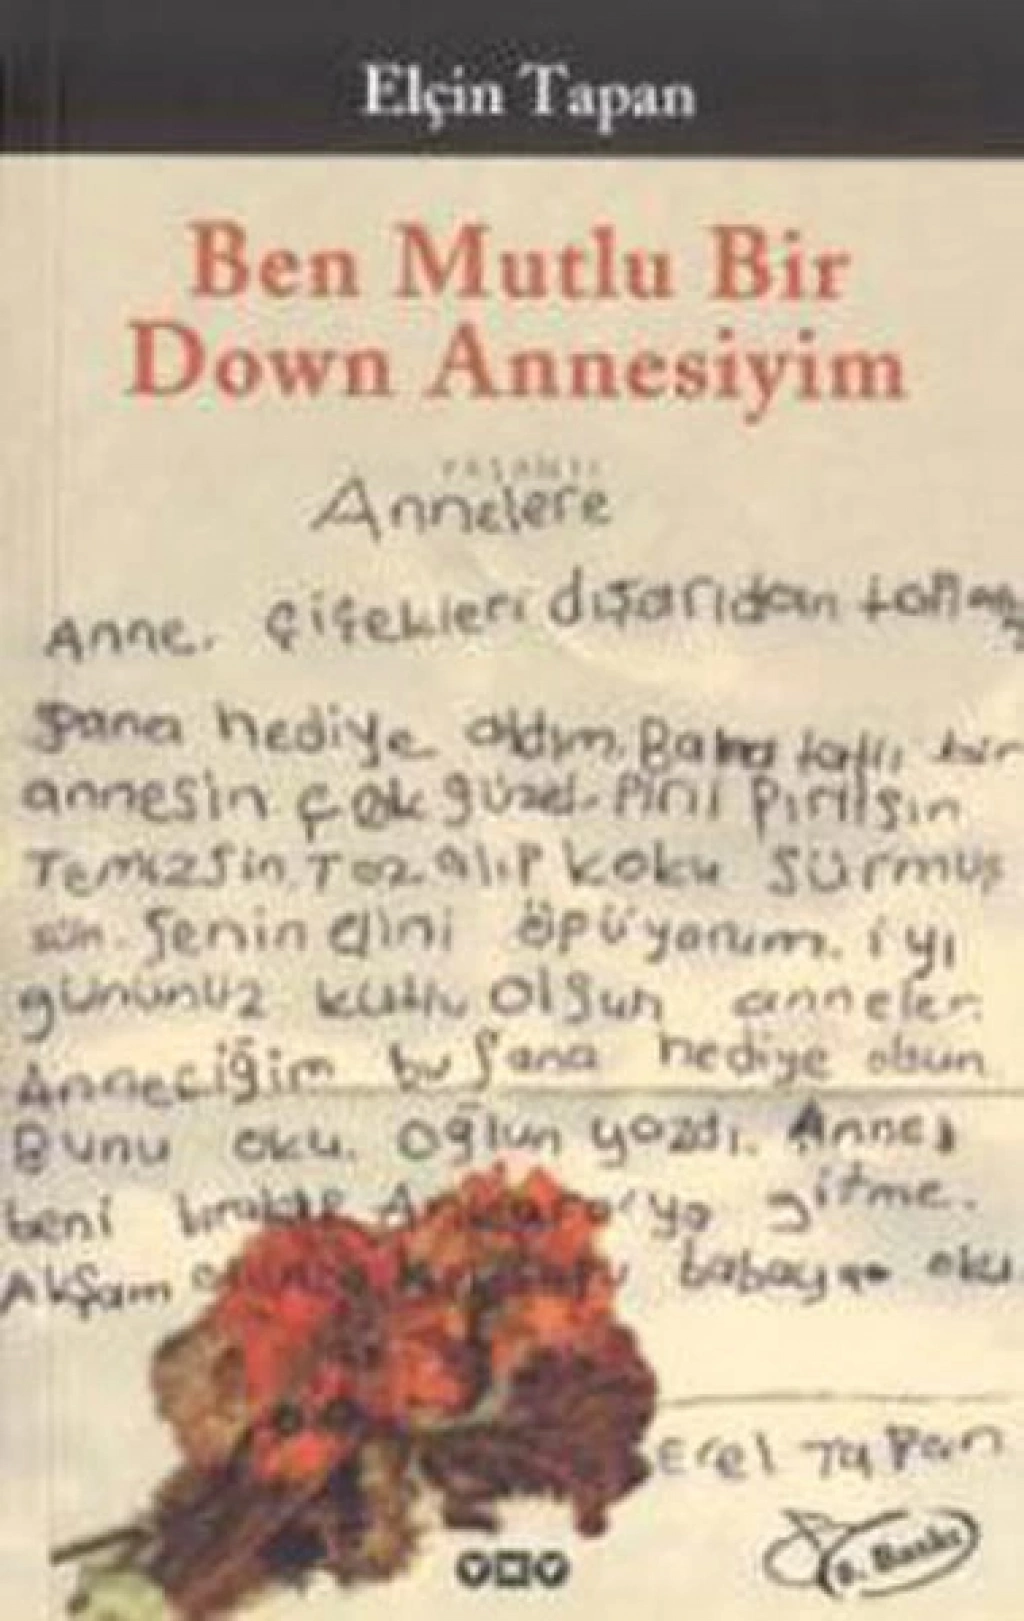 Elçin Tapan
Ben Mutlu Bir
Down Annesiyim
YAŞANTI
Annelere
Anne. çiçekleri dışarıdan
Şana hediye aldım. Bana tatlı bir
annesin çok güzel. Pırıl Pırılsın
Temizsin. Toz alıp koku sürmüş
sün. Şenin elini öpüyorum. iyi
gününüz kutlu olsun anneler.
Anneciğim bu Şana hediye olsun
Bunu oku. Oğlun yazdı. Anne
beni bırakıp Ankara'ya gitme.
Akşam babaya oku.
Erel Tapan
YKY
8. Baskı